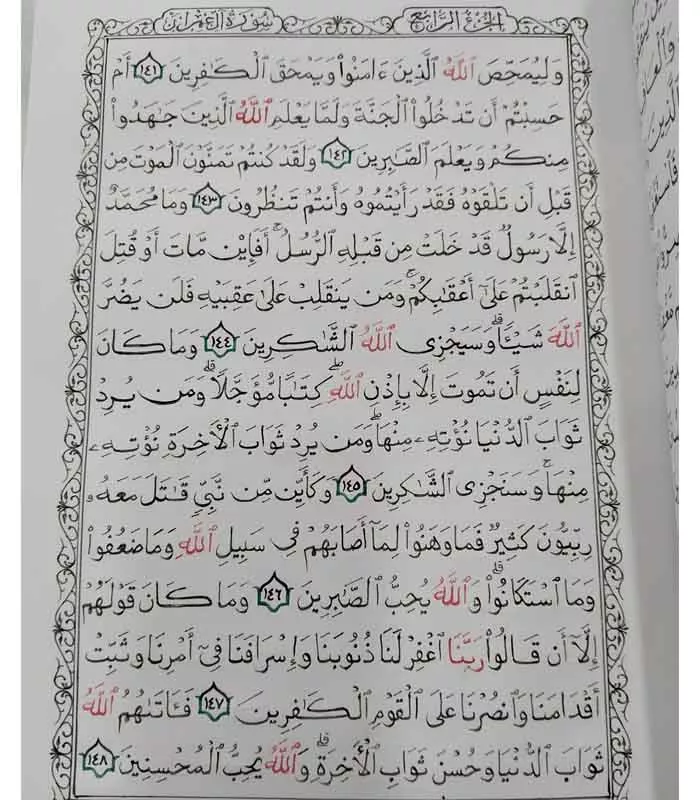 الجزء الرابع
سورة آل عمران
وَلِيُمَحِّصَ ٱللَّهُ ٱلَّذِينَ ءَامَنُوا۟ وَيَمْحَقَ ٱلْكَـٰفِرِينَ ١٤١ أَمْ
حَسِبْتُمْ أَن تَدْخُلُوا۟ ٱلْجَنَّةَ وَلَمَّا يَعْلَمِ ٱللَّهُ ٱلَّذِينَ جَـٰهَدُوا۟
مِنكُمْ وَيَعْلَمَ ٱلصَّـٰبِرِينَ ١٤٢ وَلَقَدْ كُنتُمْ تَمَنَّوْنَ ٱلْمَوْتَ مِن
قَبْلِ أَن تَلْقَوْهُ فَقَدْ رَأَيْتُمُوهُ وَأَنتُمْ تَنظُرُونَ ١٤٣ وَمَا مُحَمَّدٌ
إِلَّا رَسُولٌ قَدْ خَلَتْ مِن قَبْلِهِ ٱلرُّسُلُ ۚ أَفَإِي۟ن مَّاتَ أَوْ قُتِلَ
ٱنقَلَبْتُمْ عَلَىٰٓ أَعْقَـٰبِكُمْ ۚ وَمَن يَنقَلِبْ عَلَىٰ عَقِبَيْهِ فَلَن يَضُرَّ
ٱللَّهَ شَيْـًٔا ۗ وَسَيَجْزِى ٱللَّهُ ٱلشَّـٰكِرِينَ ١٤٤ وَمَا كَانَ
لِنَفْسٍ أَن تَمُوتَ إِلَّا بِإِذْنِ ٱللَّهِ كِتَـٰبًا مُّؤَجَّلًا ۗ وَمَن يُرِدْ
ثَوَابَ ٱلدُّنْيَا نُؤْتِهِۦ مِنْهَا وَمَن يُرِدْ ثَوَابَ ٱلْـَٔاخِرَةِ نُؤْتِهِۦ
مِنْهَا ۚ وَسَنَجْزِى ٱلشَّـٰكِرِينَ ١٤٥ وَكَأَيِّن مِّن نَّبِىٍّ قَـٰتَلَ مَعَهُۥ
رِبِّيُّونَ كَثِيرٌ فَمَا وَهَنُوا۟ لِمَآ أَصَابَهُمْ فِى سَبِيلِ ٱللَّهِ وَمَا ضَعُفُوا۟
وَمَا ٱسْتَكَانُوا۟ ۗ وَٱللَّهُ يُحِبُّ ٱلصَّـٰبِرِينَ ١٤٦ وَمَا كَانَ قَوْلَهُمْ
إِلَّآ أَن قَالُوا۟ رَبَّنَا ٱغْفِرْ لَنَا ذُنُوبَنَا وَإِسْرَافَنَا فِىٓ أَمْرِنَا وَثَبِّتْ
أَقْدَامَنَا وَٱنصُرْنَا عَلَى ٱلْقَوْمِ ٱلْكَـٰفِرِينَ ١٤٧ فَـَٔاتَىٰهُمُ ٱللَّهُ
ثَوَابَ ٱلدُّنْيَا وَحُسْنَ ثَوَابِ ٱلْـَٔاخِرَةِ ۗ وَٱللَّهُ يُحِبُّ ٱلْمُحْسِنِينَ ١٤٨